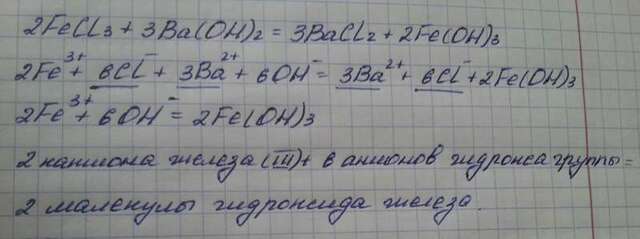 2FeCl₃ + 3Ba(OH)₂ = 3BaCl₂ + 2Fe(OH)₃
2Fe³⁺ + 6Cl⁻ + 3Ba²⁺ + 6OH⁻ = 3Ba²⁺ + 6Cl⁻ + 2Fe(OH)₃
2Fe³⁺ + 6OH⁻ = 2Fe(OH)₃
2 катиона железа (III) + 6 анионов гидрокса группы =
2 малекулы гидроксида железа.